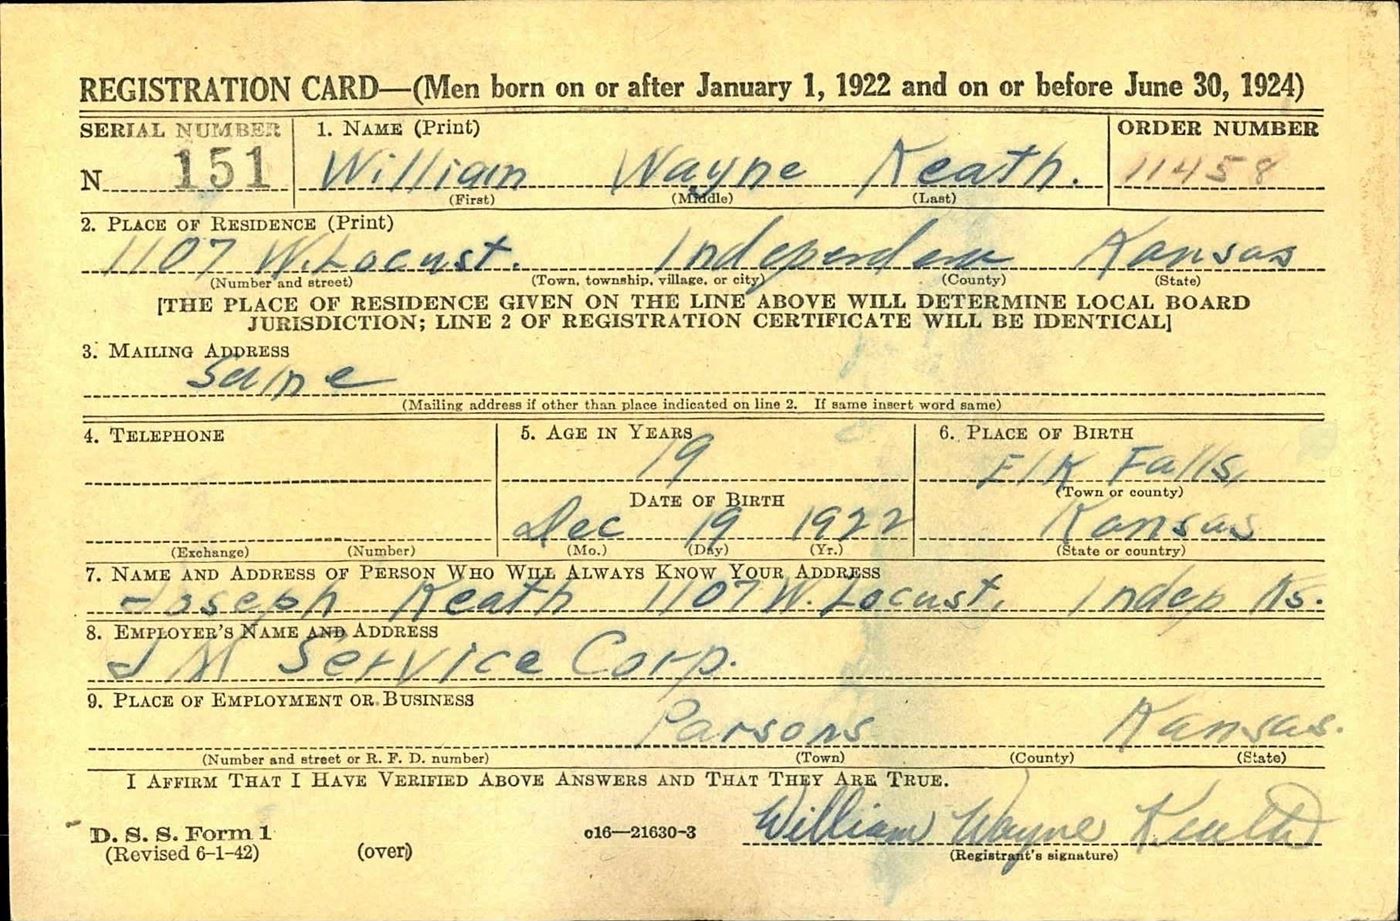 REGISTRATION CARD—(Men born on or after January 1, 1922 and on or before June 30, 1924)
SERIAL NUMBER 1. NAME (Print) ORDER NUMBER
N 151 William Wayne Keath. 11458
(First) (Middle) (Last)
2. PLACE OF RESIDENCE (Print)
1107 W. Locust. Independence Kansas
(Number and street) (Town, township, village, or city) (County) (State)
[THE PLACE OF RESIDENCE GIVEN ON THE LINE ABOVE WILL DETERMINE LOCAL BOARD
JURISDICTION; LINE 2 OF REGISTRATION CERTIFICATE WILL BE IDENTICAL]
3. MAILING ADDRESS
Same
(Mailing address if other than place indicated on line 2. If same insert word same)
4. TELEPHONE 5. AGE IN YEARS 6. PLACE OF BIRTH
19 Elk Falls,
DATE OF BIRTH (Town or county)
Dec 19 1922 Kansas
(Exchange) (Number) (Mo.) (Day) (Yr.) (State or country)
7. NAME AND ADDRESS OF PERSON WHO WILL ALWAYS KNOW YOUR ADDRESS
Joseph Keath 1107 W. Locust, Indep Ks.
8. EMPLOYER'S NAME AND ADDRESS
J M Service Corp.
9. PLACE OF EMPLOYMENT OR BUSINESS
Parsons Kansas.
(Number and street or R. F. D. number) (Town) (County) (State)
I AFFIRM THAT I HAVE VERIFIED ABOVE ANSWERS AND THAT THEY ARE TRUE.
D. S. S. Form 1 c16—21630-3 William Wayne Keath
(Revised 6-1-42) (over) (Registrant's signature)